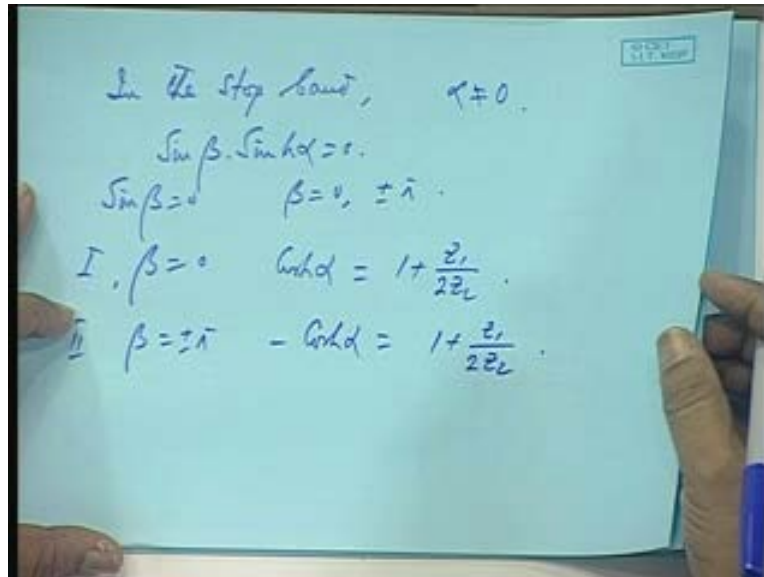 In the stop band, α ≠ 0.
Sin β. Sinh α = 0.
Sin β = 0 β = 0, ± π.
I, β = 0 Cosh α = 1 + Z₁/2Z₂.
II β = ± π - Cosh α = 1 + Z₁/2Z₂.